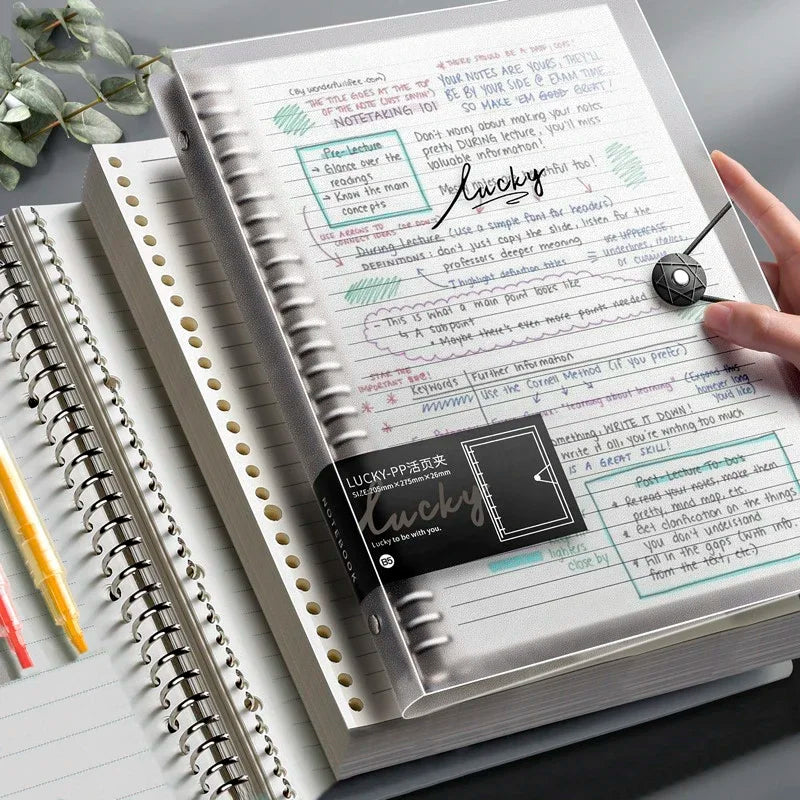 (By wonderfullifee.com)
* THERE SHOULD BE A
THE TITLE GOES AT THE TOP
OF THE NOTE (JUST SAYIN')
NOTETAKING 101
YOUR NOTES ARE YOURS, THEY'LL
BE BY YOUR SIDE @ EXAM TIME
SO MAKE 'EM GOOD GREAT!
Pre-Lecture
→ Glance over the
readings
→ Know the main
concepts
Don't worry about making your notes
pretty DURING lecture, you'll miss
valuable information!
too!
lucky
USE ARROWS TO
CONNECT IDEAS (OR DOWN
During Lecture (Use a simple font for headers)
DEFINITIONS: don't just copy the slide, listen for the
professors deeper meaning
↑ highlight definition titles
= use UPPERCASE,
underlines, italics,
or cursive
- This is what a main point looks like
↳ A subpoint
• Maybe there's even more points needed
STAR THE
IMPORTANT
Keywords
Further Information
Use the Cornell Method (if you prefer)
"learning about learning"
(Expand this
however long
you'd like)
WRITE IT DOWN!
write it all, you're writing too much
IS A GREAT SKILL!
Post Lecture To-Do's
* Re-read your notes, make them
pretty, mind map, etc.
* Get clarification on the things
you don't understand
* Fill in the gaps (with info.
from the text, etc.)
close by
LUCKY-PP活页夹
SIZE:205mm×275mm×26mm
lucky
Lucky to be with you.
B5
NOTEBOOK